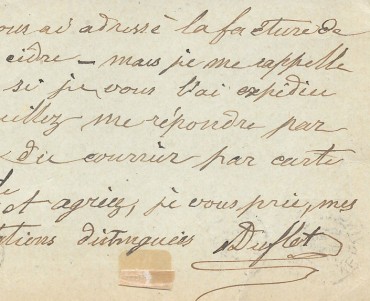 ous ai adressé la facture de
cidre – mais je me rappelle
si je vous l'ai expédiée
uillez me répondre par
du courrier par carte
et agréez, je vous prie, mes
ations distinguées Duflot